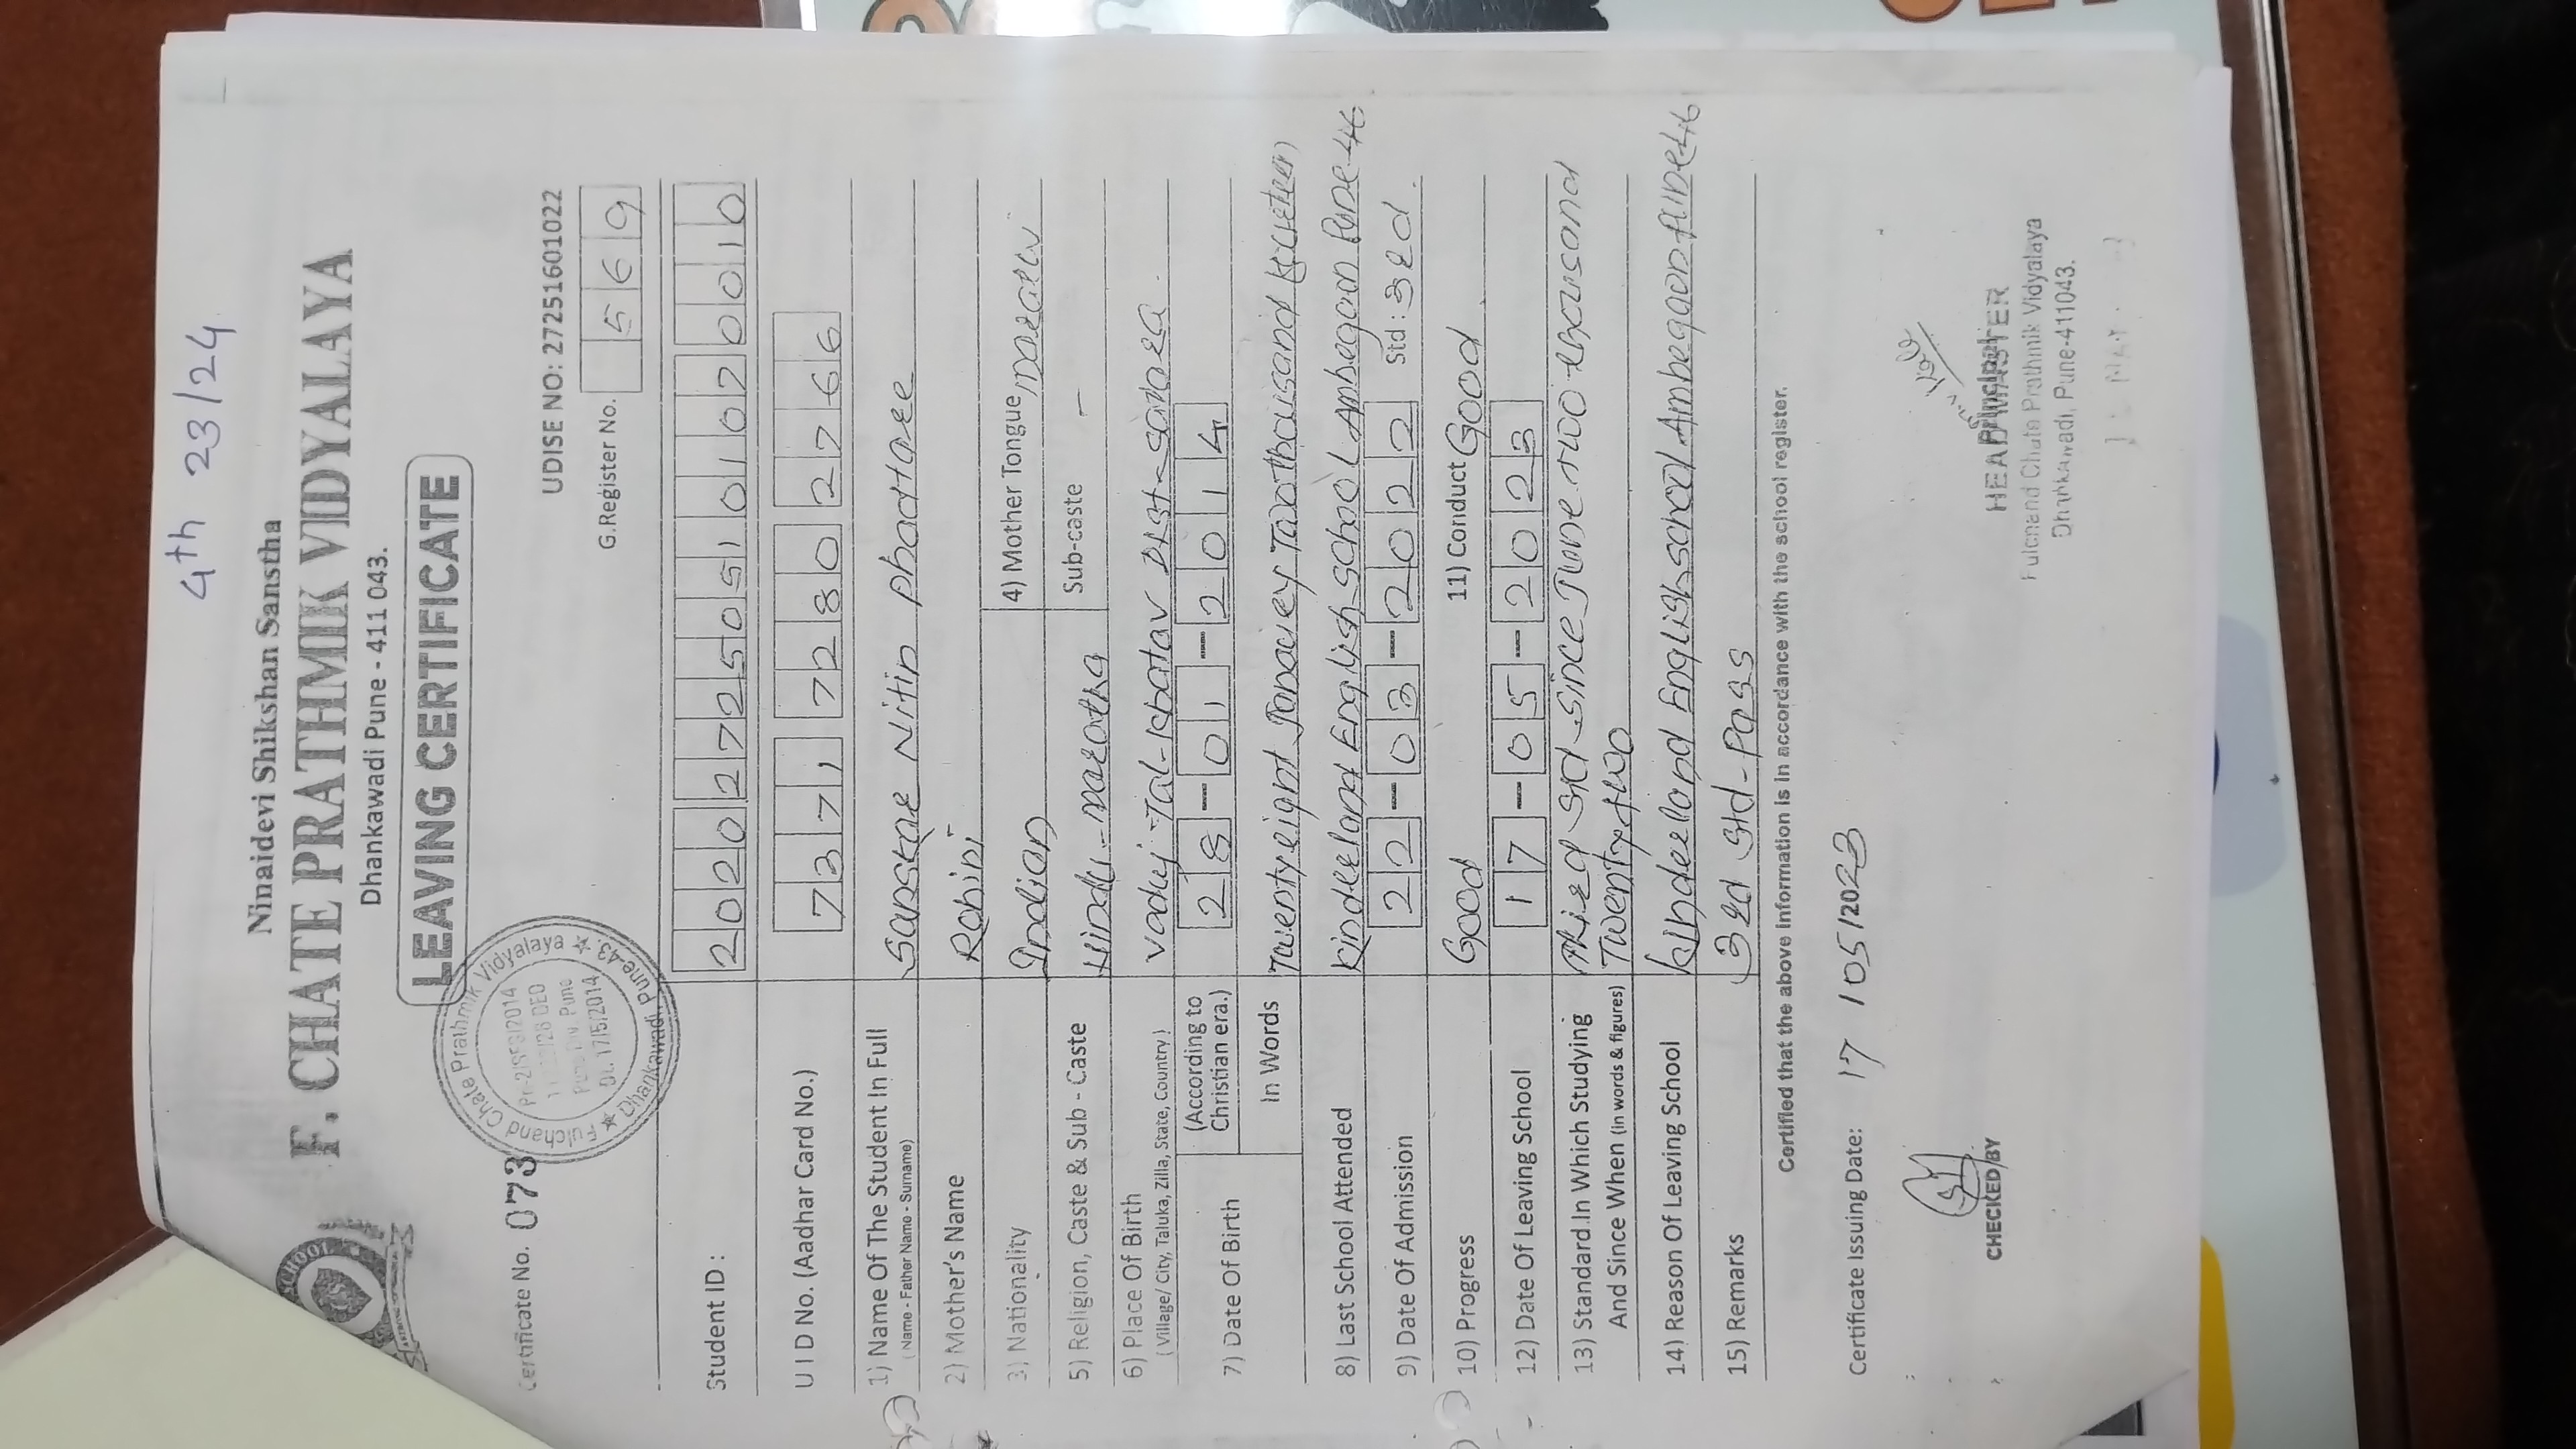 4th 23/24
Ninaidevi Shikshan Sanstha
F. CHATE PRATHMIK VIDYALAYA
Dhankawadi Pune - 411 043.
LEAVING CERTIFICATE
Fulchand Chate Prathmik Vidyalaya
Dhankawadi, Pune-43.
Dt. 17/5/2014
Certificate No. 073
UDISE NO: 27251601022
G.Register No. 569
Student ID : 202272505101020010
U I D No. (Aadhar Card No.) 7371 7280 2766
1) Name Of The Student In Full Sanskar Nitin phadtare
(Name - Father Name - Surname)
2) Mother's Name Rohini
3) Nationality Indian 4) Mother Tongue marathi
5) Religion, Caste & Sub - Caste Hindu - maratha Sub-caste -
6) Place Of Birth vaduj Tal-Khatav Dist-satara
(Village/ City, Taluka, Zilla, State, Country)
7) Date Of Birth (According to Christian era.) 28-01-2014
In Words Twenty eight
8) Last School Attended Kinderland English school Ambegaon Pune-46
9) Date Of Admission 22-03-2022 Std : 3rd
10) Progress Good 11) Conduct Good
12) Date Of Leaving School 17-05-2023
13) Standard In Which Studying std since June two thousand
And Since When (in words & figures) Twenty two
14) Reason Of Leaving School kinderland English Ambegaon 46
15) Remarks 3rd std - Pass
Certified that the above information is in accordance with the school register.
Certificate Issuing Date: 17/05/2023
CHECKED BY
Principal
HEADMASTER
Fulchand Chate Prathmik Vidyalaya
Dhankawadi, Pune-411043.